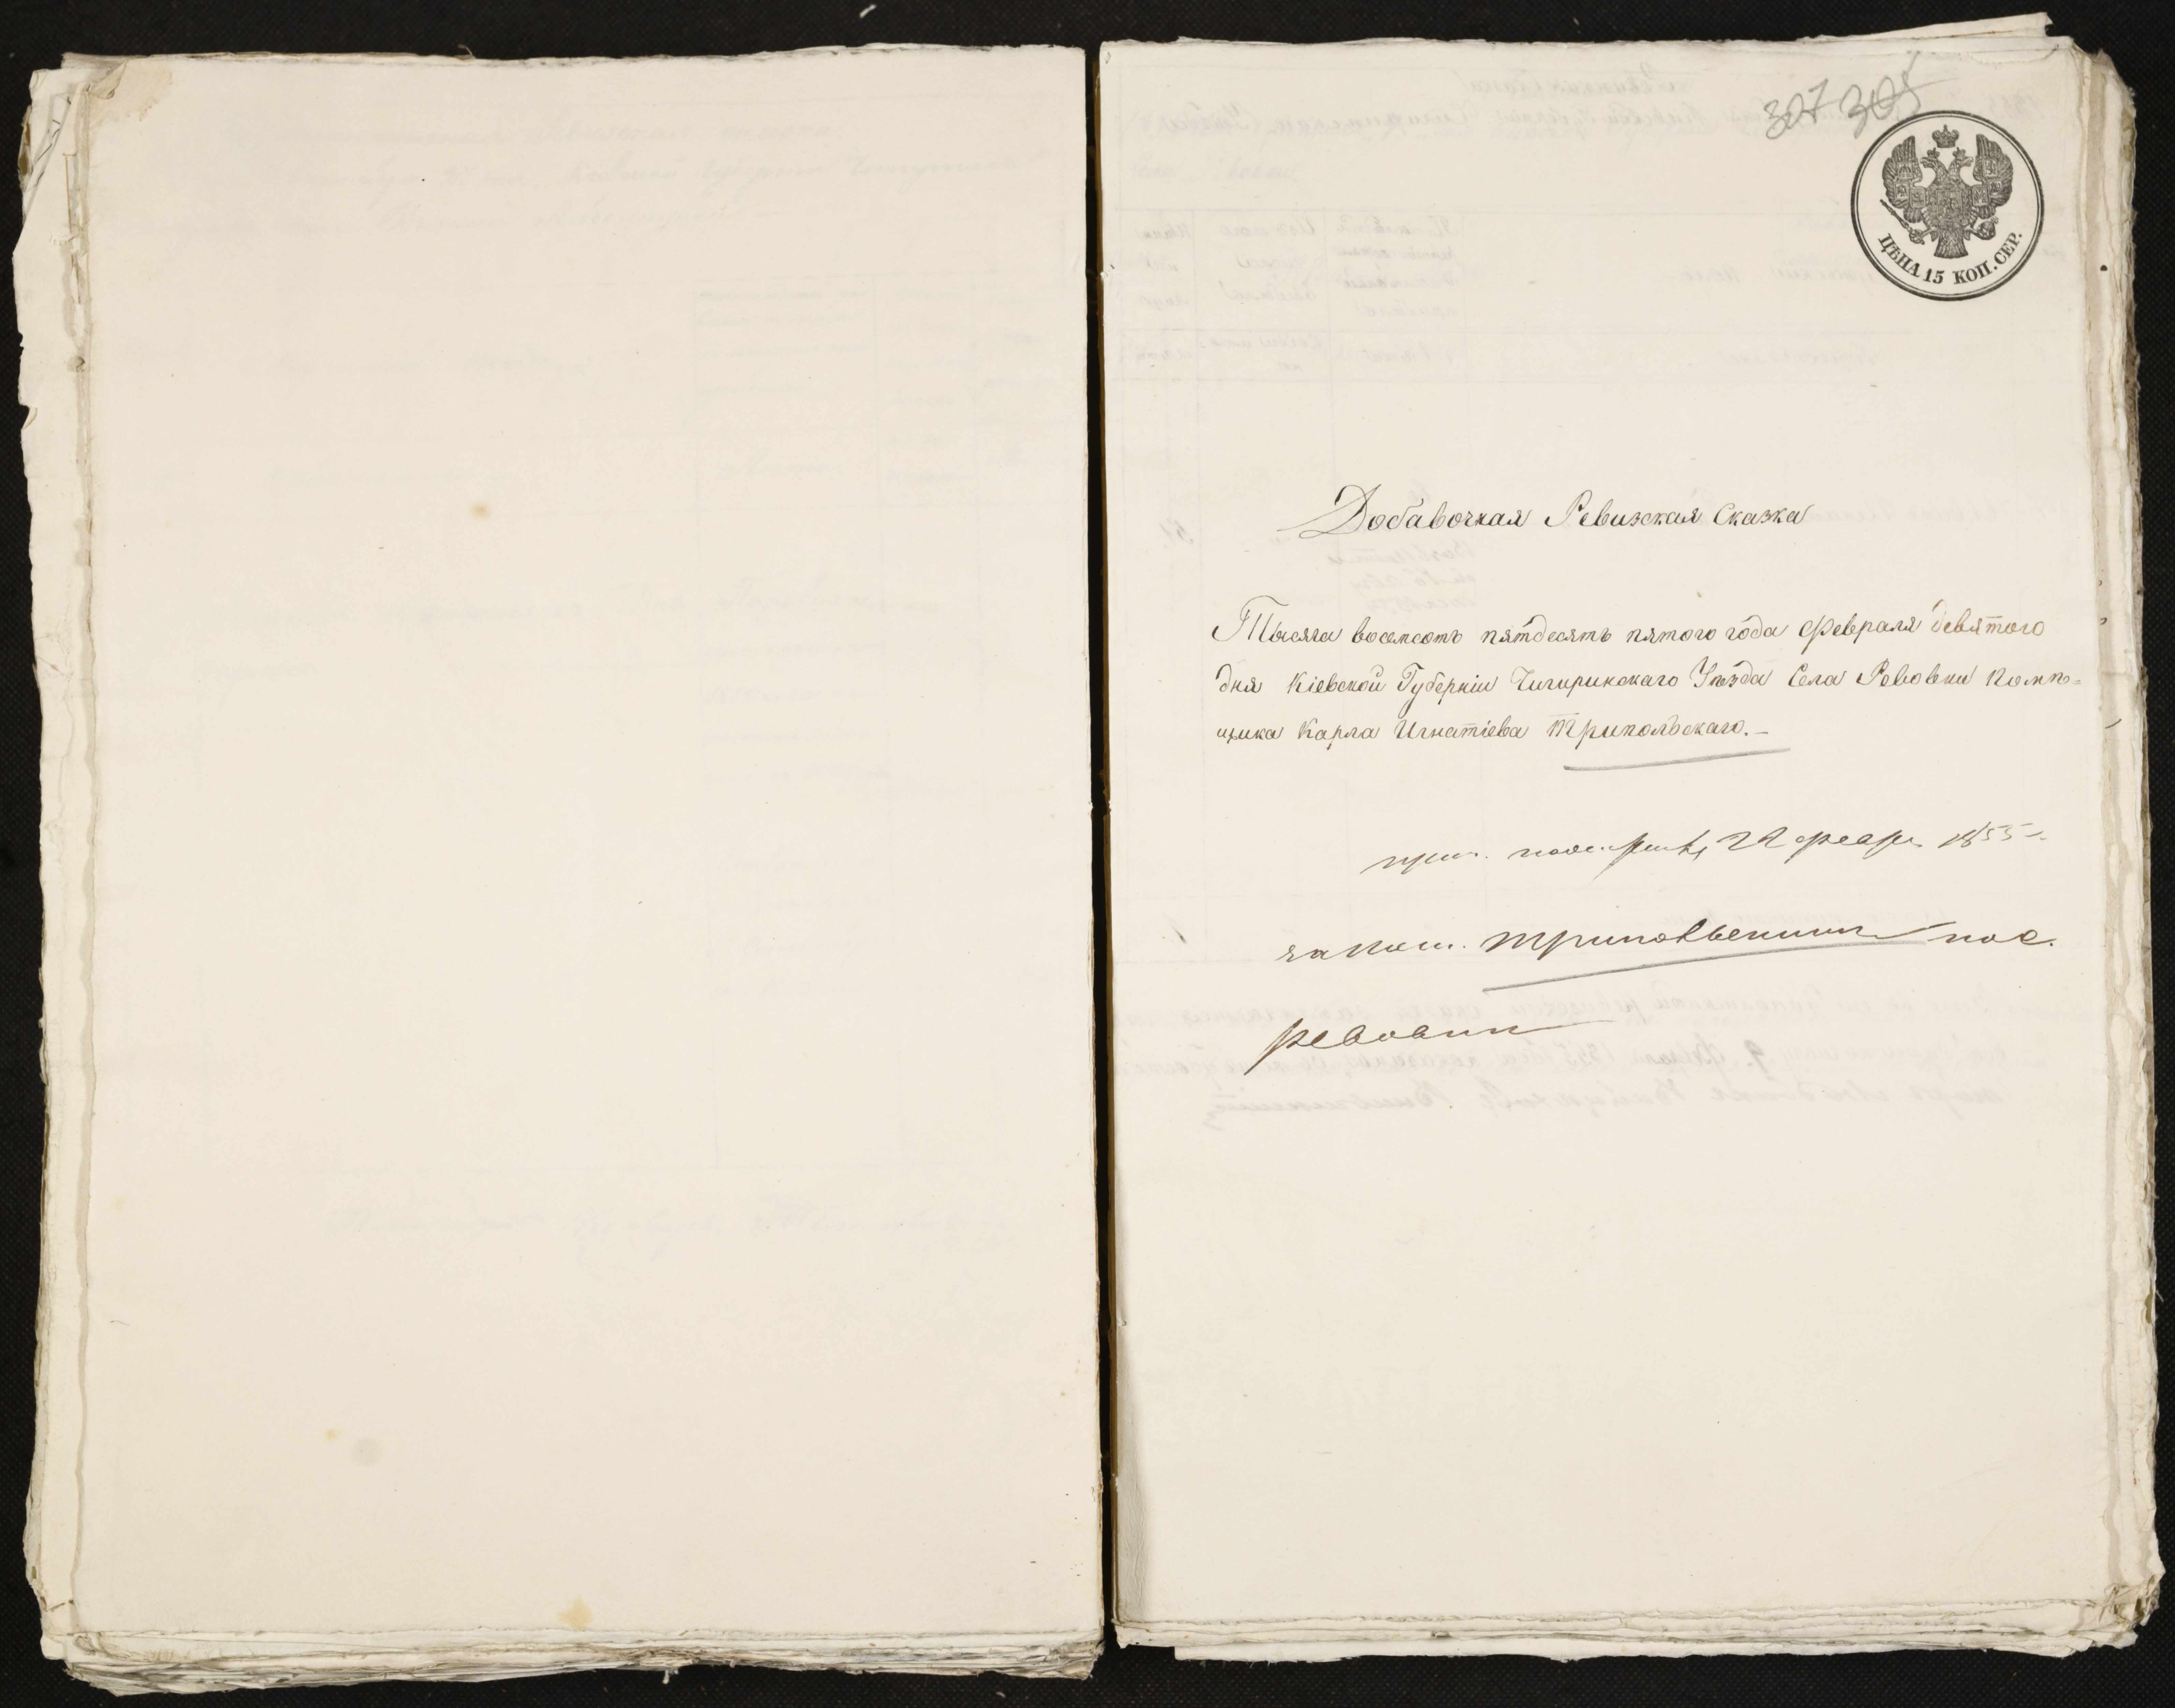 307 305
ЦѢНА 15 КОП. СЕР.
Добавочная Ревизская Сказка
Тысяча восемсотъ пятдесятъ пятого года Февраля девятого
дня Кіевской Губерніи Чигиринскаго Уѣзда Села Ревовки Помѣ=
щика Карла Игнатіева Трипольскаго.—
22 февр. 1855 г.
за пом. Трипольскимъ пос.
Ревовки